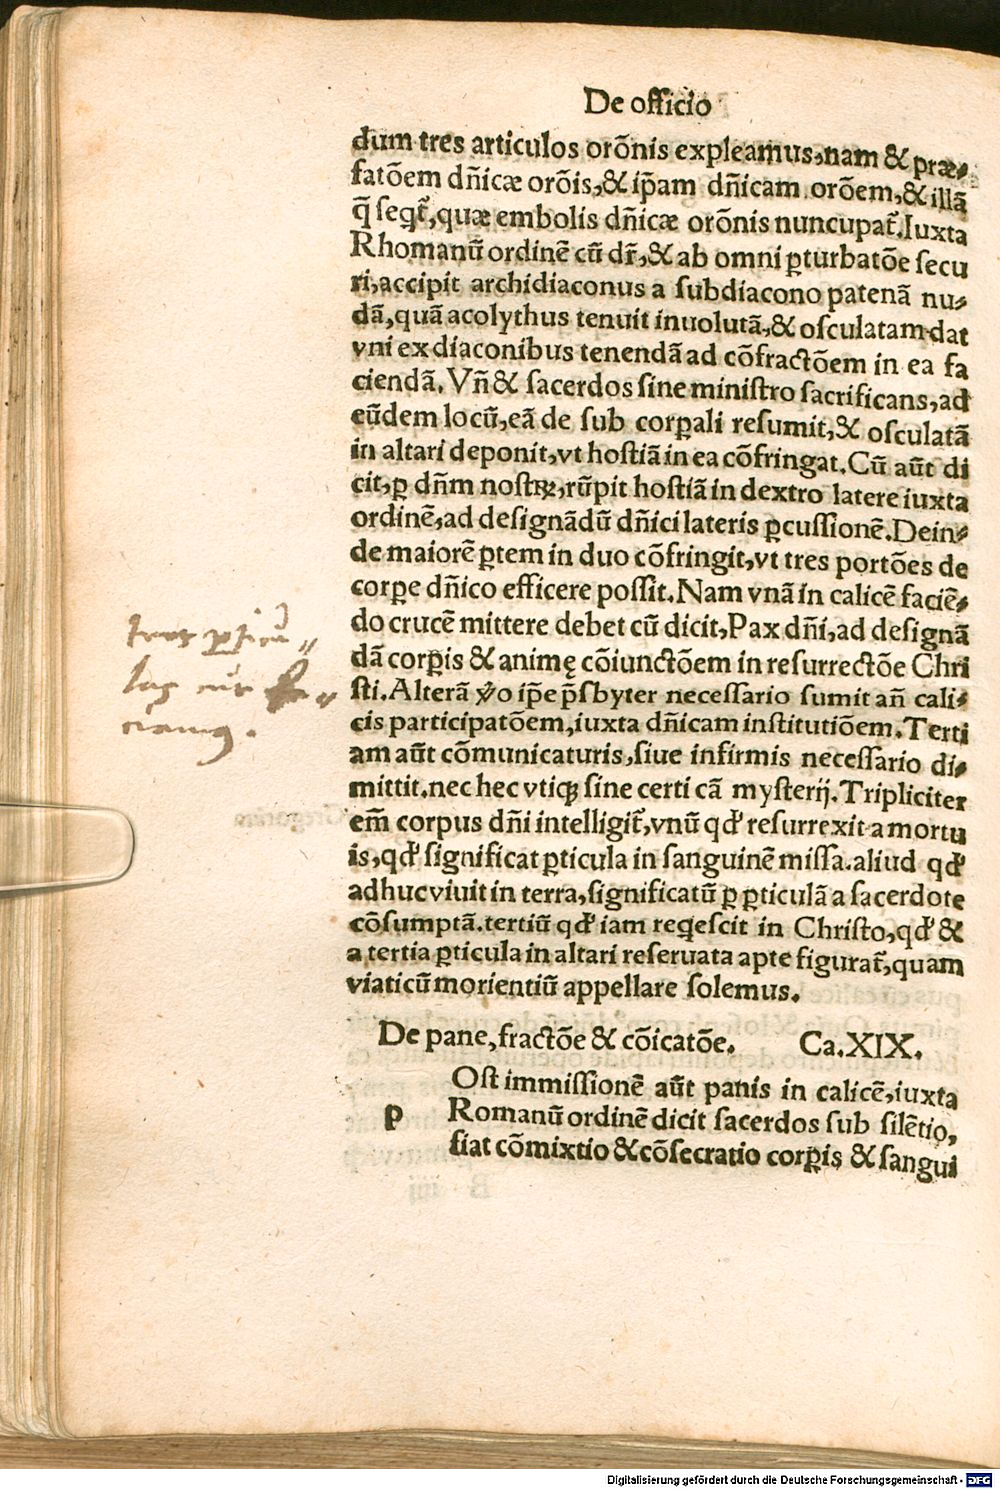 De officio
dum tres articulos orōnis expleamus,nam & præ-
fatōem dn̄icæ orōis,& ip̄am dn̄icam orōem,& illā
q̄ seqt̄,quæ embolis dn̄icæ orōnis nuncupat̄.Iuxta
Rhomanū ordinē cū dr̄,& ab omni ꝑturbatōe secu
ri,accipit archidiaconus a subdiacono patenā nu-
dā,quā acolythus tenuit inuolutā,& osculatam dat
vni ex diaconibus tenendā ad cōfractōem in ea fa
ciendā.Vn̄ & sacerdos sine ministro sacrificans,ad
eūdem locū,eā de sub corꝑali resumit,& osculatā
in altari deponit,vt hostiā in ea cōfringat.Cū aūt di
cit,ꝑ dn̄m nostꝝ,rūpit hostiā in dextro latere iuxta
ordinē,ad designādū dn̄ici lateris ꝑcussionē.Dein-
de maiorē ꝑtem in duo cōfringit,vt tres portōes de
corꝑe dn̄ico efficere possit.Nam vnā in calicē faciē-
do crucē mittere debet cū dicit,Pax dn̄i,ad designā
dā corꝑis & animę cōiunctōem in resurrectōe Chri
sti.Alterā v̊o ip̄e p̄sbyter necessario sumit an̄ cali-
cis participatōem,iuxta dn̄icam institutiōem.Terti
am aūt cōmunicaturis,siue infirmis necessario di-
mittit.nec hec vtiqꝫ sine certi cā mysterij.Tripliciter
em̄ corpus dn̄i intelligit̄,vnū qd' resurrexit a mortu
is,qd' significat ꝑticula in sanguinē missa.aliud qd'
adhuc viuit in terra,significatū ꝑ ꝑticulā a sacerdote
cōsumptā.tertiū qd' iam reqescit in Christo,qd' &
a tertia ꝑticula in altari reseruata apte figurat̄,quam
viaticū morientiū appellare solemus.
tres ꝑticu
las cur
ciamus.
De pane,fractōe & cōicatōe. Ca.XIX.
Ost immissionē aūt panis in calicē,iuxta
p Romanū ordinē dicit sacerdos sub silētio,
fiat cōmixtio & cōsecratio corꝑis & sangui
Digitalisierung gefördert durch die Deutsche Forschungsgemeinschaft - DFG